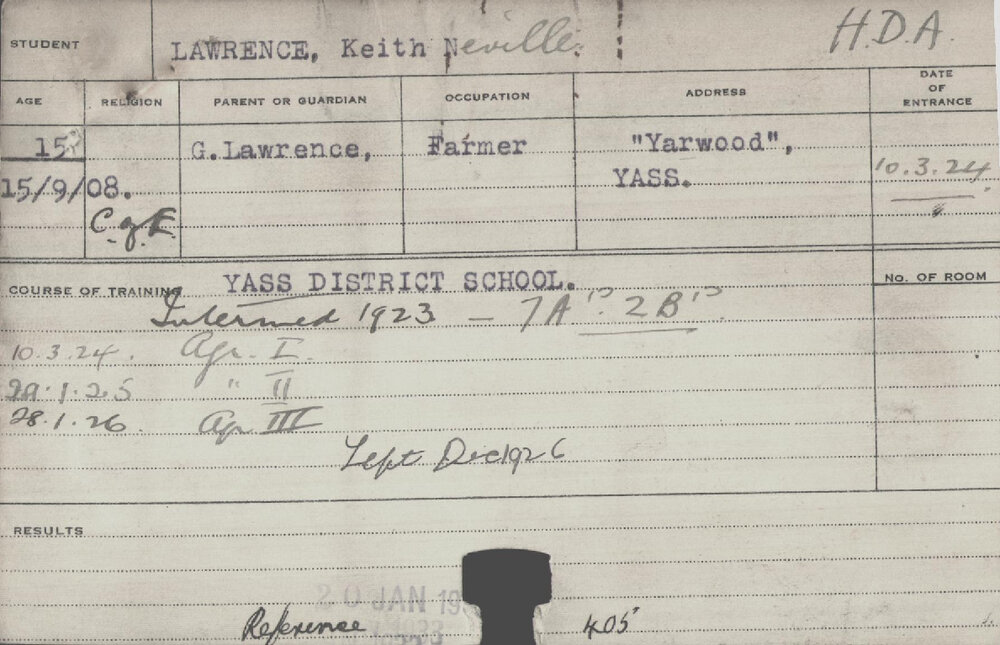 STUDENT LAWRENCE, Keith Neville. H.D.A.
AGE RELIGION PARENT OR GUARDIAN OCCUPATION ADDRESS DATE OF ENTRANCE
15 G.Lawrence, Farmer "Yarwood",
15/9/08. YASS. 10.3.24.
C. of E.
COURSE OF TRAINING YASS DISTRICT SCHOOL. No. OF ROOM
Intermed 1923 — 7A's 2B's
10.3.24. Agr. I.
29.1.25 " II
28.1.26. Agr III
Left Dec 1926
RESULTS
20 JAN 19
Reference 405